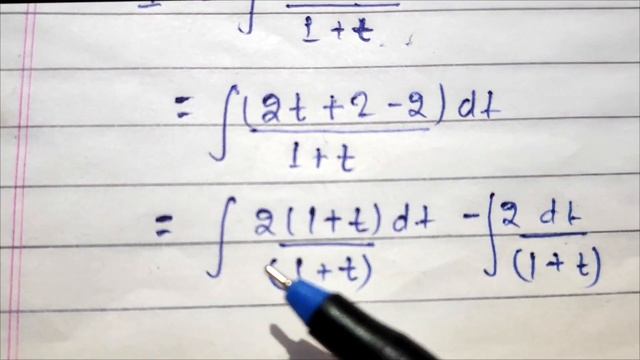 ∫ ───
1 + t
= ∫ (2t + 2 - 2) dt
1 + t
= ∫ 2 (1 + t) dt - ∫ 2 dt
(1 + t) (1 + t)